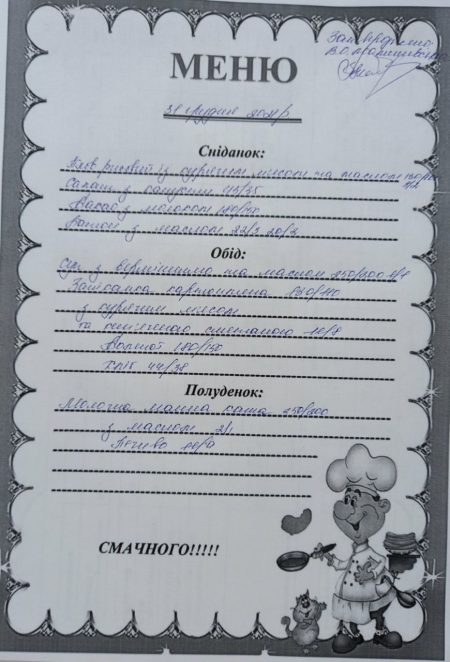 Затверджено
В.О.
МЕНЮ
31 грудня 2021р
Сніданок:
Плов рисовий із курячим м'ясом та маслом
Салат з 45/35
Какао з молоком 180/150
Батон з маслом 22/3 20/3
Обід:
Суп з вермішеллю та маслом 250/200
Запіканка картопляна
з курячим м'ясом
та сметаною
Компот 180/150
Хліб 44/38
Полуденок:
Молочна манна каша 250/200
з маслом
Печиво
СМАЧНОГО!!!!!